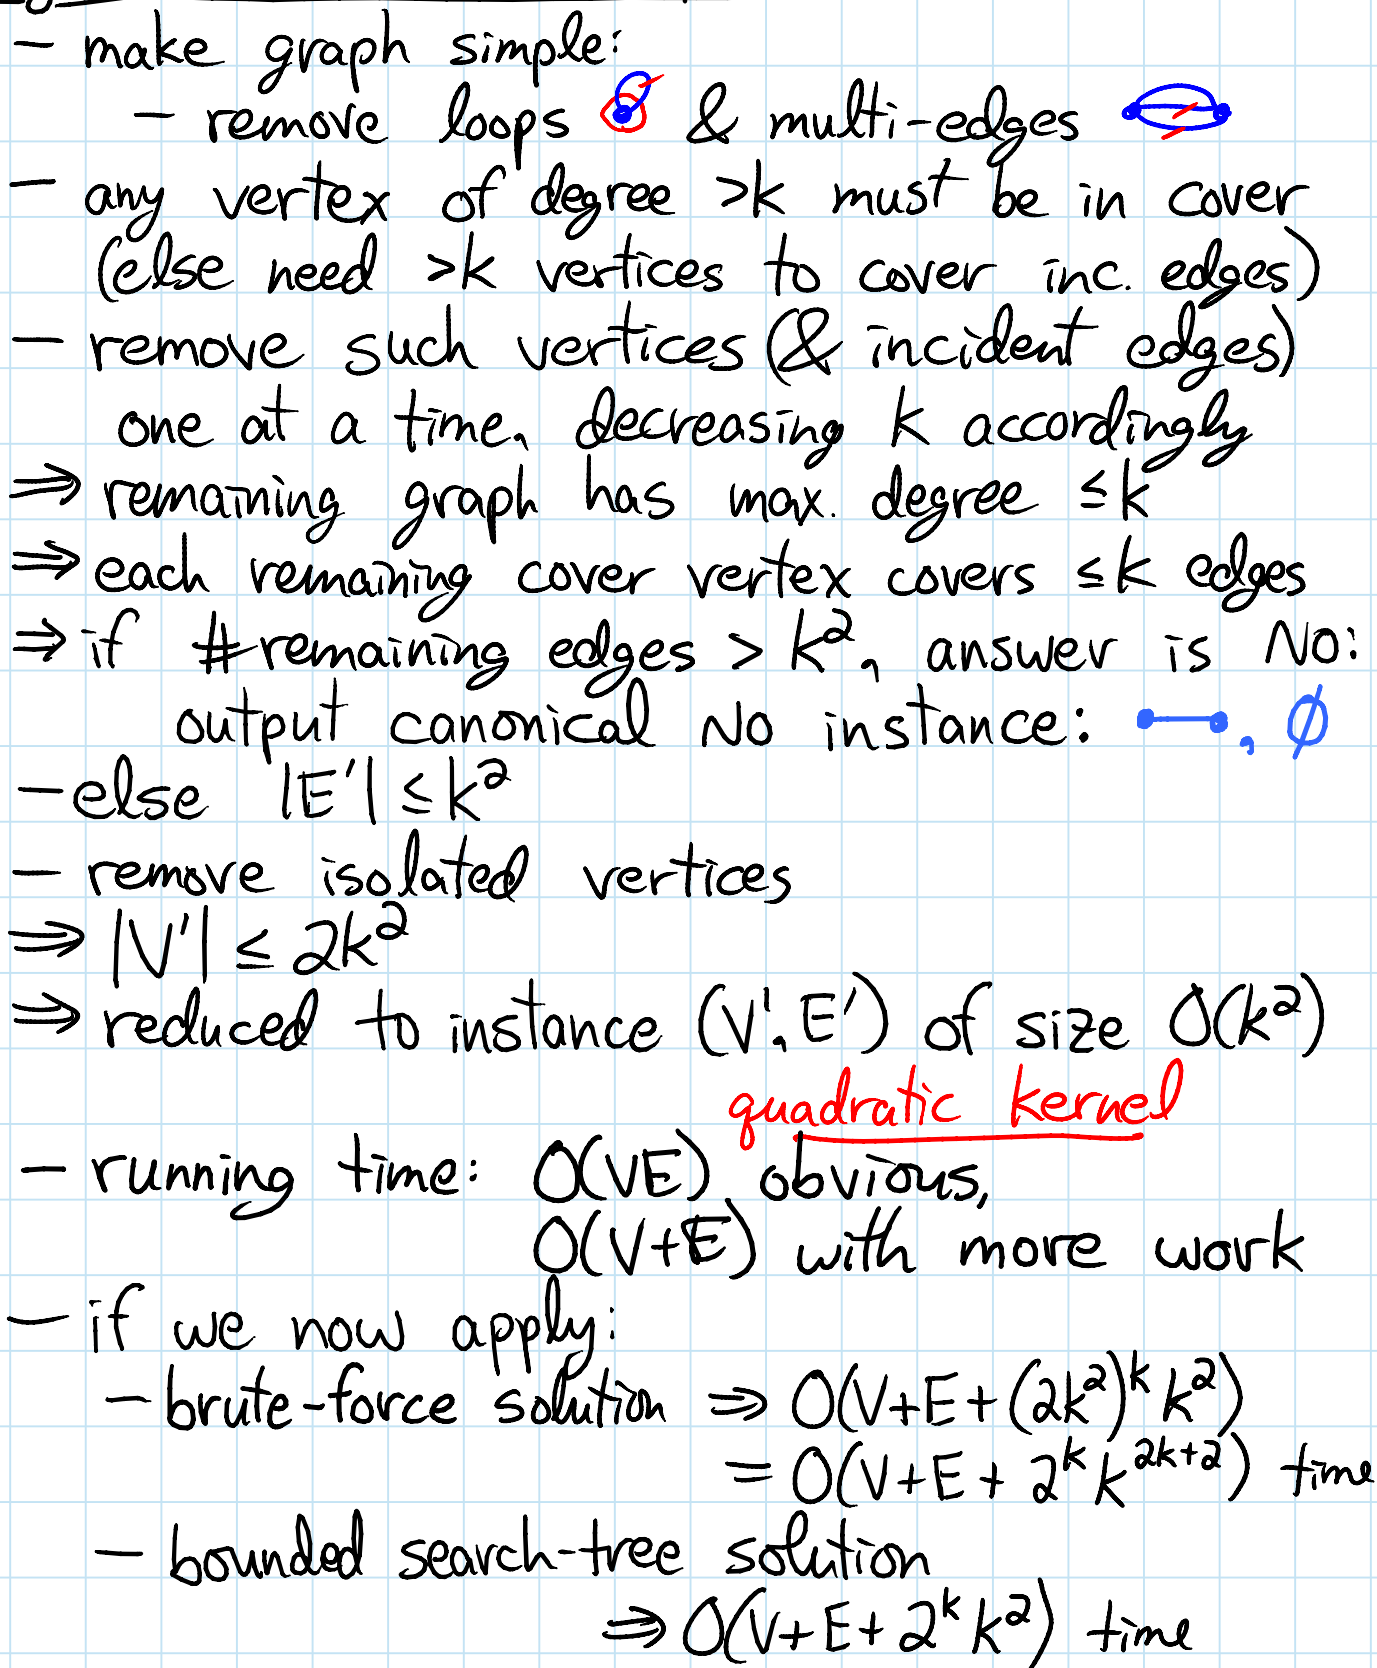 — make graph simple:
— remove loops & multi-edges
— any vertex of degree >k must be in cover
(else need >k vertices to cover inc. edges)
— remove such vertices (& incident edges)
one at a time, decreasing k accordingly
⇒ remaining graph has max. degree ≤k
⇒ each remaining cover vertex covers ≤k edges
⇒ if #remaining edges > k², answer is NO:
output canonical NO instance: , ∅
— else |E'| ≤ k²
— remove isolated vertices
⇒ |V'| ≤ 2k²
⇒ reduced to instance (V', E') of size O(k²)
quadratic kernel
— running time: O(VE) obvious,
O(V+E) with more work
— if we now apply:
— brute-force solution ⇒ O(V+E+(2k²)ᵏ k²)
= O(V+E+2ᵏ k²ᵏ⁺²) time
— bounded search-tree solution
⇒ O(V+E+2ᵏ k²) time